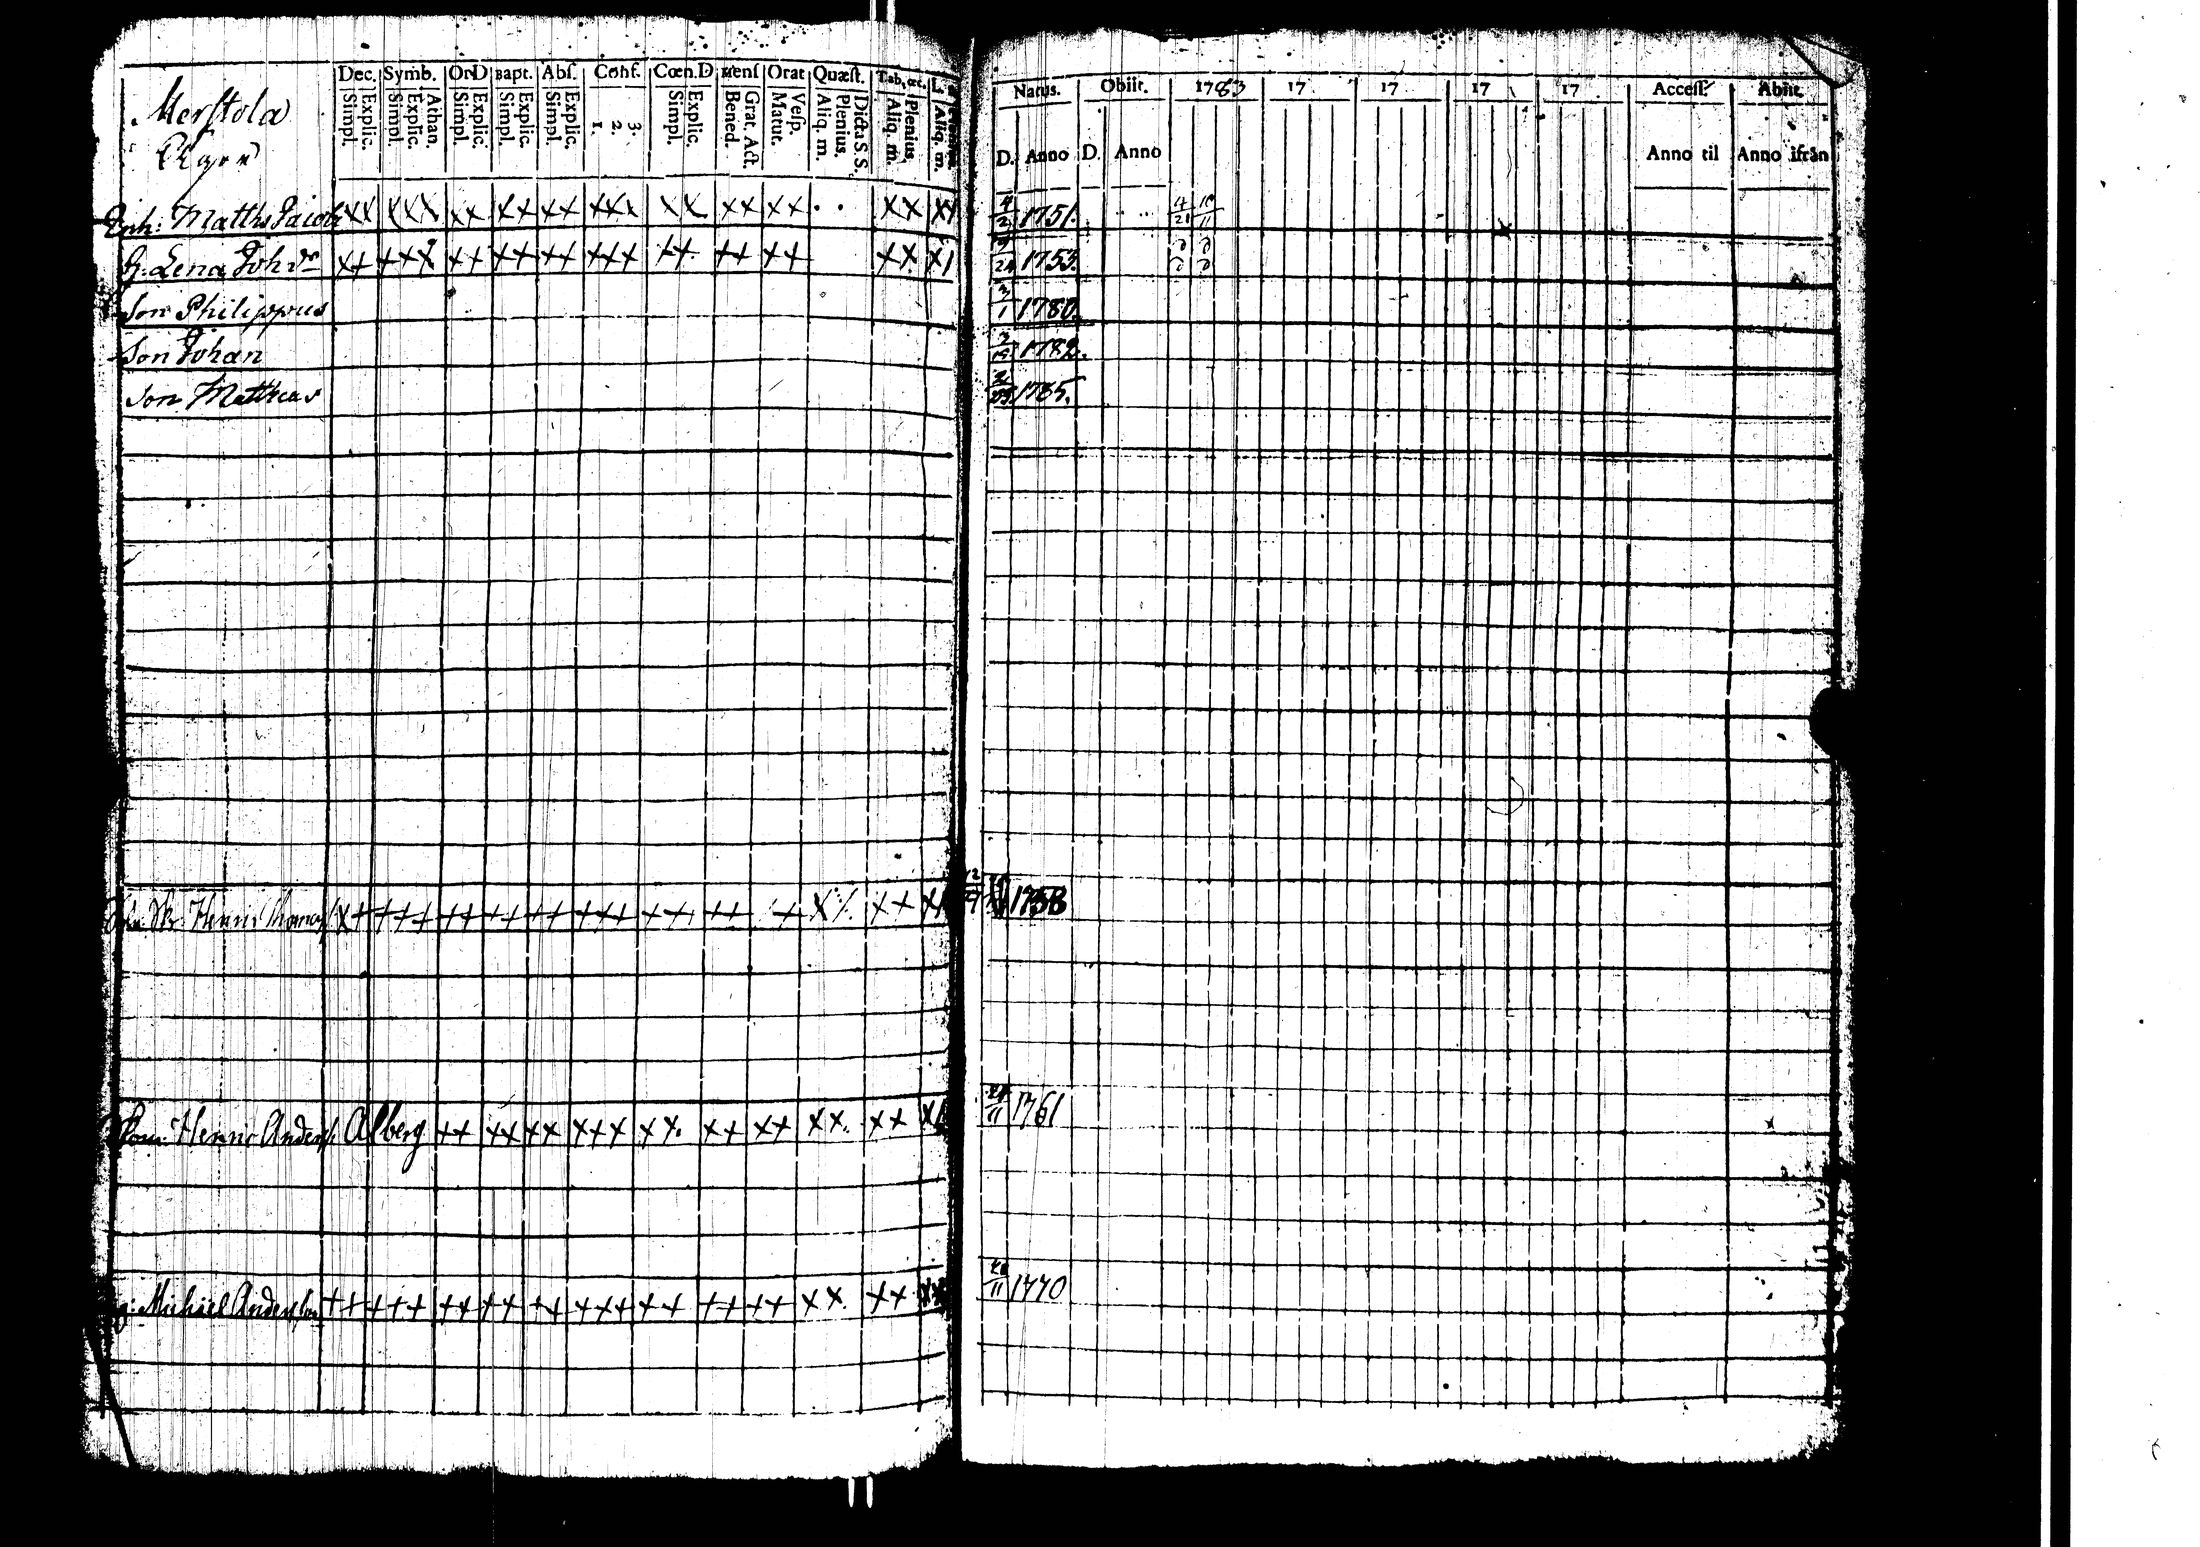 Merstola
Dec. Symb. Or.D Bapt. Abs. Conf. Cœn.D Mens Orat Quæst. Tab. œc. L.
Simpl. Explic. Simpl. Explic. Athan. Simpl. Explic. Simpl. Explic. Simpl. Explic. 1. 2. 3. Simpl. Explic. Bened. Grat. Act. Matut. Vesp. Aliq. m. Plenius. Dicta S.S. Aliq. m. Plenius. Aliq. m.
Natus. Obiit. 1783 17 17 17 17 Access. Abiit.
D. Anno D. Anno Anno til Anno ifrån
Enh: Matths Jacobs xx xxx xx xx xx xxx xx xx xx . . xx x 4/2 1751. 4/21 10/11
H: Lena Joh dr xx xxx xx xx xx xxx xx xx xx xx x /24 1753.
Son Philippus 3/1 1780.
Son Johan 2/19 1782.
Son Matthias 1785.
Henric Thomas xx xxx xx xx xx xxx xx xx xx x xx x 12/9 1758
Henric Anders Alberg xx xx xx xxx xx. xx xx xx. xx x 24/11 1761
Michäel Anderson xx xxx xx xx xx xxx xx xx xx xx. xx xx /11 1770